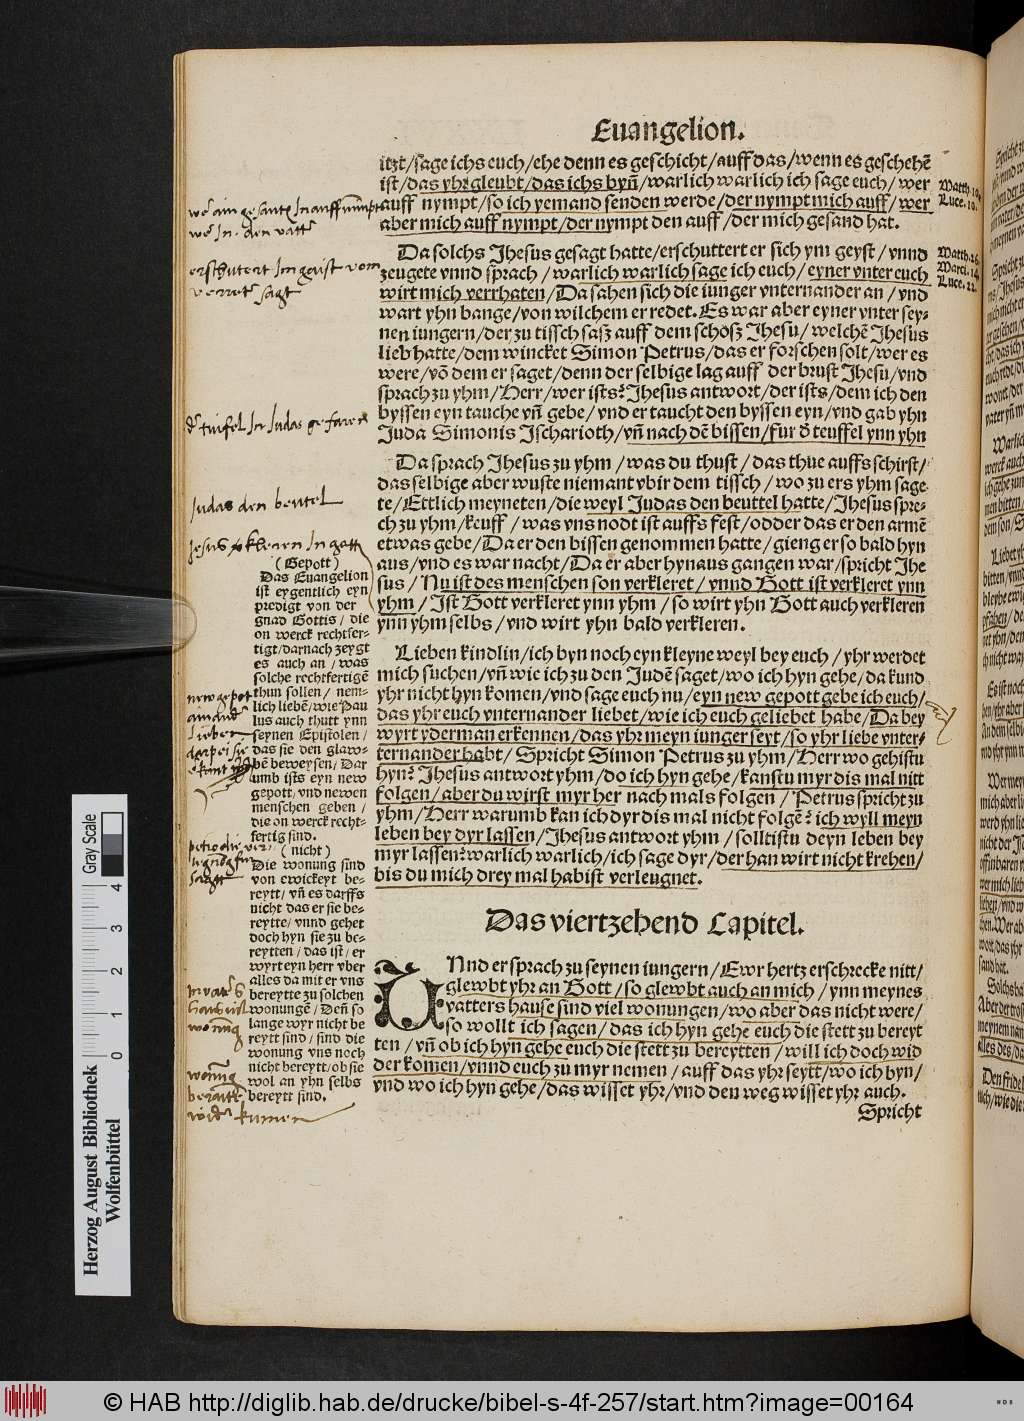 Euangelion.
itzt/sage ichs euch/ehe denn es geschicht/auff das/wenn es geschehē
ist/das yhr gleubt/das ichs byn/warlich warlich ich sage euch/wer
auff nympt/so ich yemand senden werde/der nympt mich auff/wer
aber mich auff nympt/der nympt den auff/der mich gesand hat.
Matth.10.
Luce.10.
Da solchs Jhesus gesagt hatte/erschuttert er sich ym geyst/vnnd
zeugete vnnd sprach/warlich warlich sage ich euch/eyner vnter euch
wirt mich verrhaten/Da sahen sich die iunger vnternander an/vnd
wart yhn bange/von wilchem er redet. Es war aber eyner vnter sey-
nen iungern/der zu tissch sasz auff dem schosz Jhesu/welchē Jhesus
lieb hatte/dem wincket Simon Petrus/das er forschen solt/wer es
were/vō dem er saget/denn der selbige lag auff der brust Jhesu/vnd
sprach zu yhm/Herr/wer ists? Jhesus antwort/der ists/dem ich den
byssen eyn tauche vñ gebe/vnd er taucht den byssen eyn/vnd gab yhn
Juda Simonis Jscharioth/vñ nach dē bissen/fur d̄ teuffel ynn yhn
Matth.26.
Marci.14.
Luce.22.
Da sprach Jhesus zu yhm/was du thust/das thue auffs schirst/
das selbige aber wuste niemant vbir dem tissch/wo zu ers yhm sage
te/Ettlich meyneten/die weyl Judas den beuttel hatte/Jhesus spre-
ch zu yhm/keuff/was vns nodt ist auffs fest/odder das er den armē
etwas gebe/Da er den bissen genomen hatte/gieng er so bald hyn
aus/vnd es war nacht/Da er aber hynaus gangen war/spricht Jhe
sus/Nu ist des menschen son verkleret/vnnd Gott ist verkleret ynn
yhm/Ist Gott verkleret ynn yhm/so wirt yhn Gott auch verkleren
ynn yhm selbs/vnd wirt yhn bald verkleren.
Lieben kindlin/ich byn noch eyn kleyne weyl bey euch/yhr werdet
mich suchen/vñ wie ich zu den Judē saget/wo ich hyn gehe/da kund
yhr nicht hyn komen/vnd sage euch nu/eyn new gepott gebe ich euch/
das yhr euch vnternander liebet/wie ich euch geliebet habe/Da bey
wyrt yderman erkennen/das yhr meyn iunger seyt/so yhr liebe vnter-
ternander habt/Spricht Simon Petrus zu yhm/Herr wo gehistu
hyn? Jhesus antwort yhm/do ich hyn gehe/kanstu myr dis mal nitt
folgen/aber du wirst myr her nach mals folgen/Petrus spricht zu
yhm/Herr warumb kan ich dyr dis mal nicht folgē? ich wyll meyn
leben bey dyr lassen/Jhesus antwort yhm/solltistu deyn leben bey
myr lassen? warlich warlich/ich sage dyr/der han wirt nicht krehen/
bis du mich drey mal habist verleugnet.
Das viertzehend Capitel.
Vnnd er sprach zu seynen iungern/Ewr hertz erschrecke nitt/
glewbt yhr an Gott/so glewbt auch an mich/ynn meynes
vatters hause sind viel wonungen/wo aber das nicht were/
so wollt ich sagen/das ich hyn gehe euch die stett zu bereyt
ten/vñ ob ich hyn gehe euch die stett zu bereytten/will ich doch wid
der komen/vnnd euch zu myr nemen/auff das yhr seytt/wo ich byn/
vnd wo ich hyn gehe/das wisset yhr/vnd den weg wisset yhr auch.
Spricht
verreter sagt
Judas den beutel
(Gepott)
Das Euangelion
ist eygentlich eyn
predigt von der
gnad Gottis/die
on werck rechtfer-
tigt/darnach zeygt
es auch an/was
solche rechtfertigē
thun sollen/nem-
lich liebē/wie Pau
lus auch thutt ynn
seynen Epistolen/
das sie den glaw-
bē beweysen/Dar
umb ists eyn new
gepott/vnd newen
menschen geben/
die on werck recht-
fertig sind.
(nicht)
Die wonung sind
von ewickeyt be-
reytt/vñ es darffs
nicht das er sie be-
reytte/vnnd gehet
doch hyn sie zu be-
reytten/das ist/er
wyrt eyn herr vber
alles da mit er vns
bereytte zu solchen
wonungē/Deñ so
lange wyr nicht be
reytt sind/sind die
wonung vns noch
nicht bereytt/ob sie
wol an yhn selbs
bereytt sind.
new gepot
lieben
wonung
kumen
Herzog August Bibliothek
Wolfenbüttel
Gray Scale
0 1 2 3 4
© HAB http://diglib.hab.de/drucke/bibel-s-4f-257/start.htm?image=00164